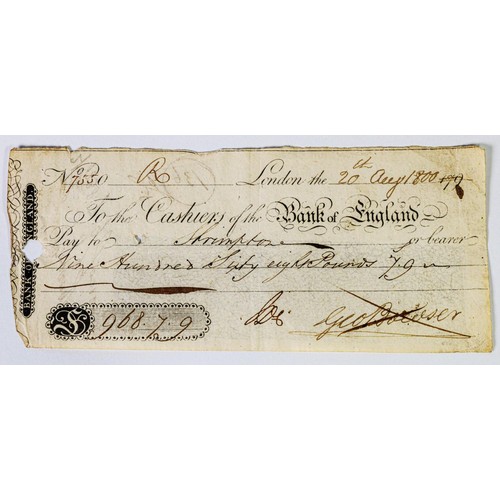 BANK OF ENGLAND.
No 7550 R London the 20th Augt 1800 179
To the Cashiers of the Bank of England
Pay to or bearer
Nine Hundred Sixty eight Pounds 7.9
£ 968.7.9 Geo